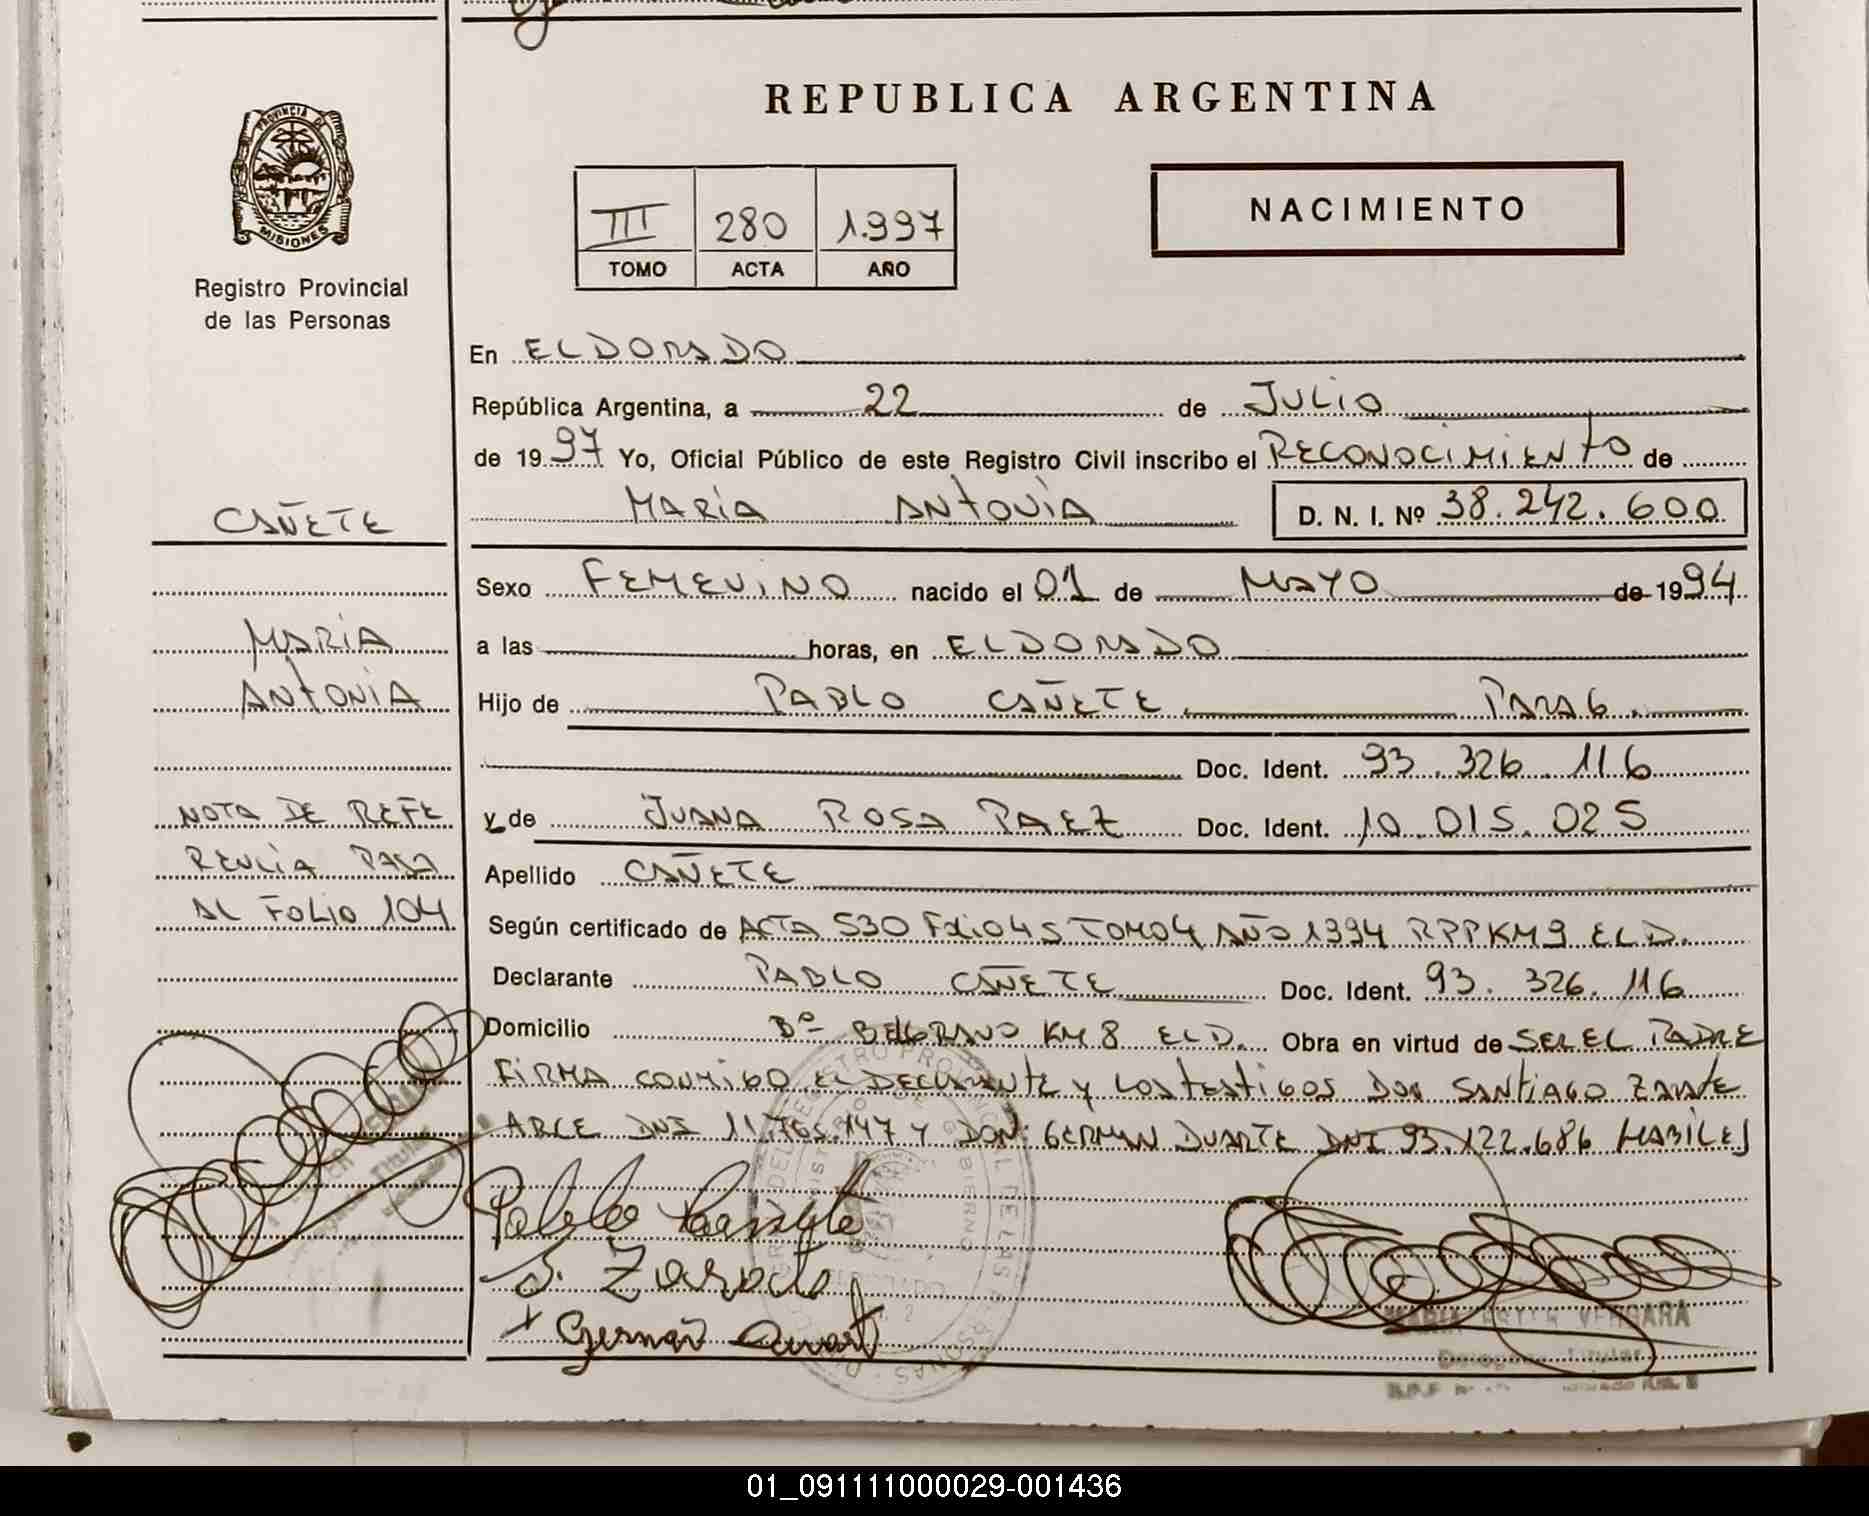 REPUBLICA ARGENTINA
PROVINCIA DE
MISIONES
Registro Provincial
de las Personas
III 280 1.997
TOMO ACTA AÑO
NACIMIENTO
En ELDORADO
República Argentina, a 22 de JULIO
de 1997 Yo, Oficial Público de este Registro Civil inscribo el RECONOCIMIENTO de
MARIA ANTONIA D. N. I. Nº 38.242.600
CAÑETE
MARIA
ANTONIA
NOTA DE REFE
RENCIA PASA
AL FOLIO 104
Sexo FEMENINO nacido el 01 de MAYO de 1994
a las horas, en ELDORADO
Hijo de PABLO CAÑETE PARAG.
Doc. Ident. 93.326.116
y de JUANA ROSA PAEZ Doc. Ident. 10.015.025
Apellido CAÑETE
Según certificado de ACTA 530 FOLIO 45 TOMO 4 AÑO 1994 RPP KM 9 ELD.
Declarante PABLO CAÑETE Doc. Ident. 93.326.116
Domicilio Bº BELGRANO KM 8 ELD. Obra en virtud de SER EL PADRE
FIRMA CONMIGO EL DECLARANTE Y LOS TESTIGOS DON SANTIAGO ZARATE
ARCE DNI 11.765.147 Y DON: GERMAN DUARTE DNI 93.122.686 HABILES
Pablo Cañete
S. Zarate
German Duart
MARIA ESTER VERGARA
Delegada Titular
01_091111000029-001436